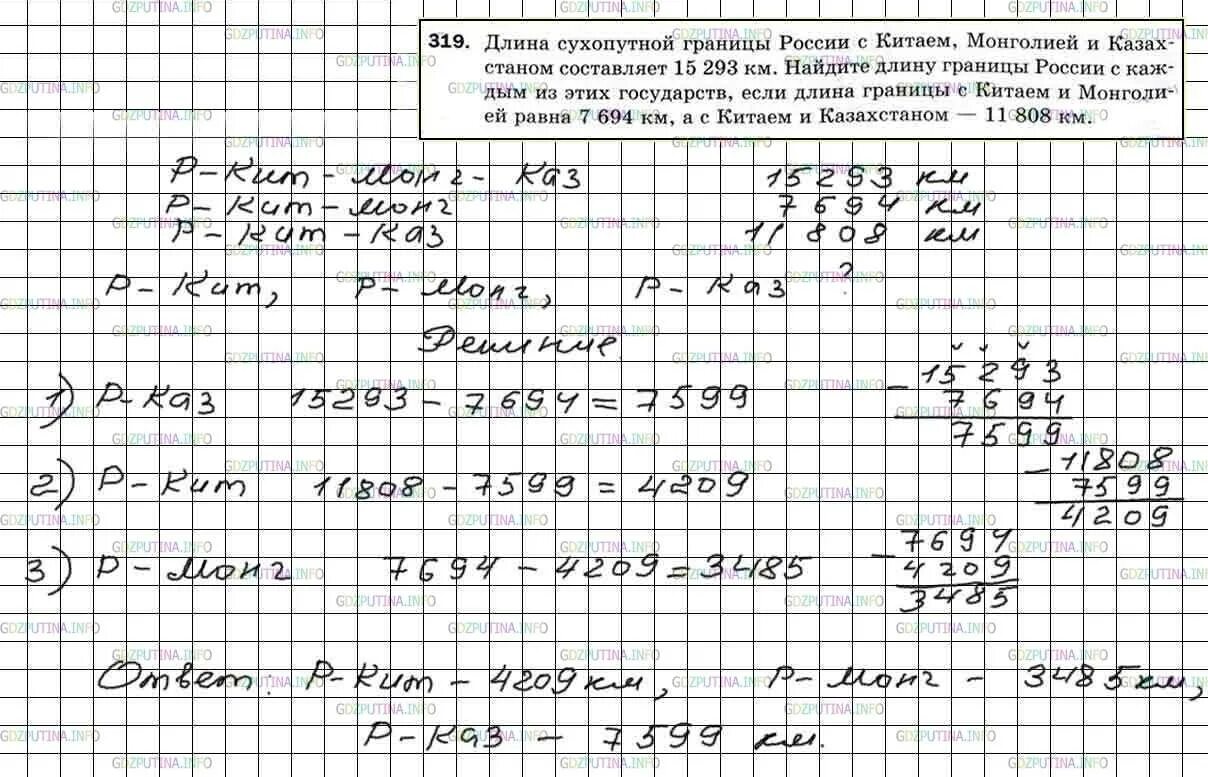 319. Длина сухопутной границы России с Китаем, Монголией и Казах-
станом составляет 15 293 км. Найдите длину границы России с каж-
дым из этих государств, если длина границы с Китаем и Монголи-
ей равна 7 694 км, а с Китаем и Казахстаном — 11 808 км.
Р-Кит-Монг-Каз 15293 км
Р-Кит-Монг 7694 км
Р-Кит-Каз 11808 км
Р-Кит, Р-Монг, Р-Каз ?
Решение
1) Р-Каз 15293 - 7694 = 7599
- 15293
7694
7599
2) Р-Кит 11808 - 7599 = 4209
- 11808
7599
4209
3) Р-Монг 7694 - 4209 = 3485
- 7694
4209
3485
Ответ: Р-Кит - 4209 км, Р-Монг - 3485 км,
Р-Каз - 7599 км.
GDZPUTINA.INFO